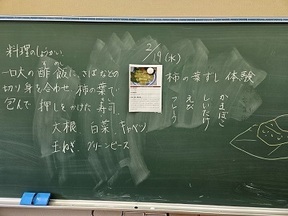 料理のしょうかい
一口大の酢飯に、さばなどの
切り身を合わせ、柿の葉で
包んで押しをかけた寿司
大根 白菜 キャベツ
玉ねぎ グリーンピース
2/19(水)
柿の葉ずし体験
かまぼこ
しいたけ
えび
こしょう